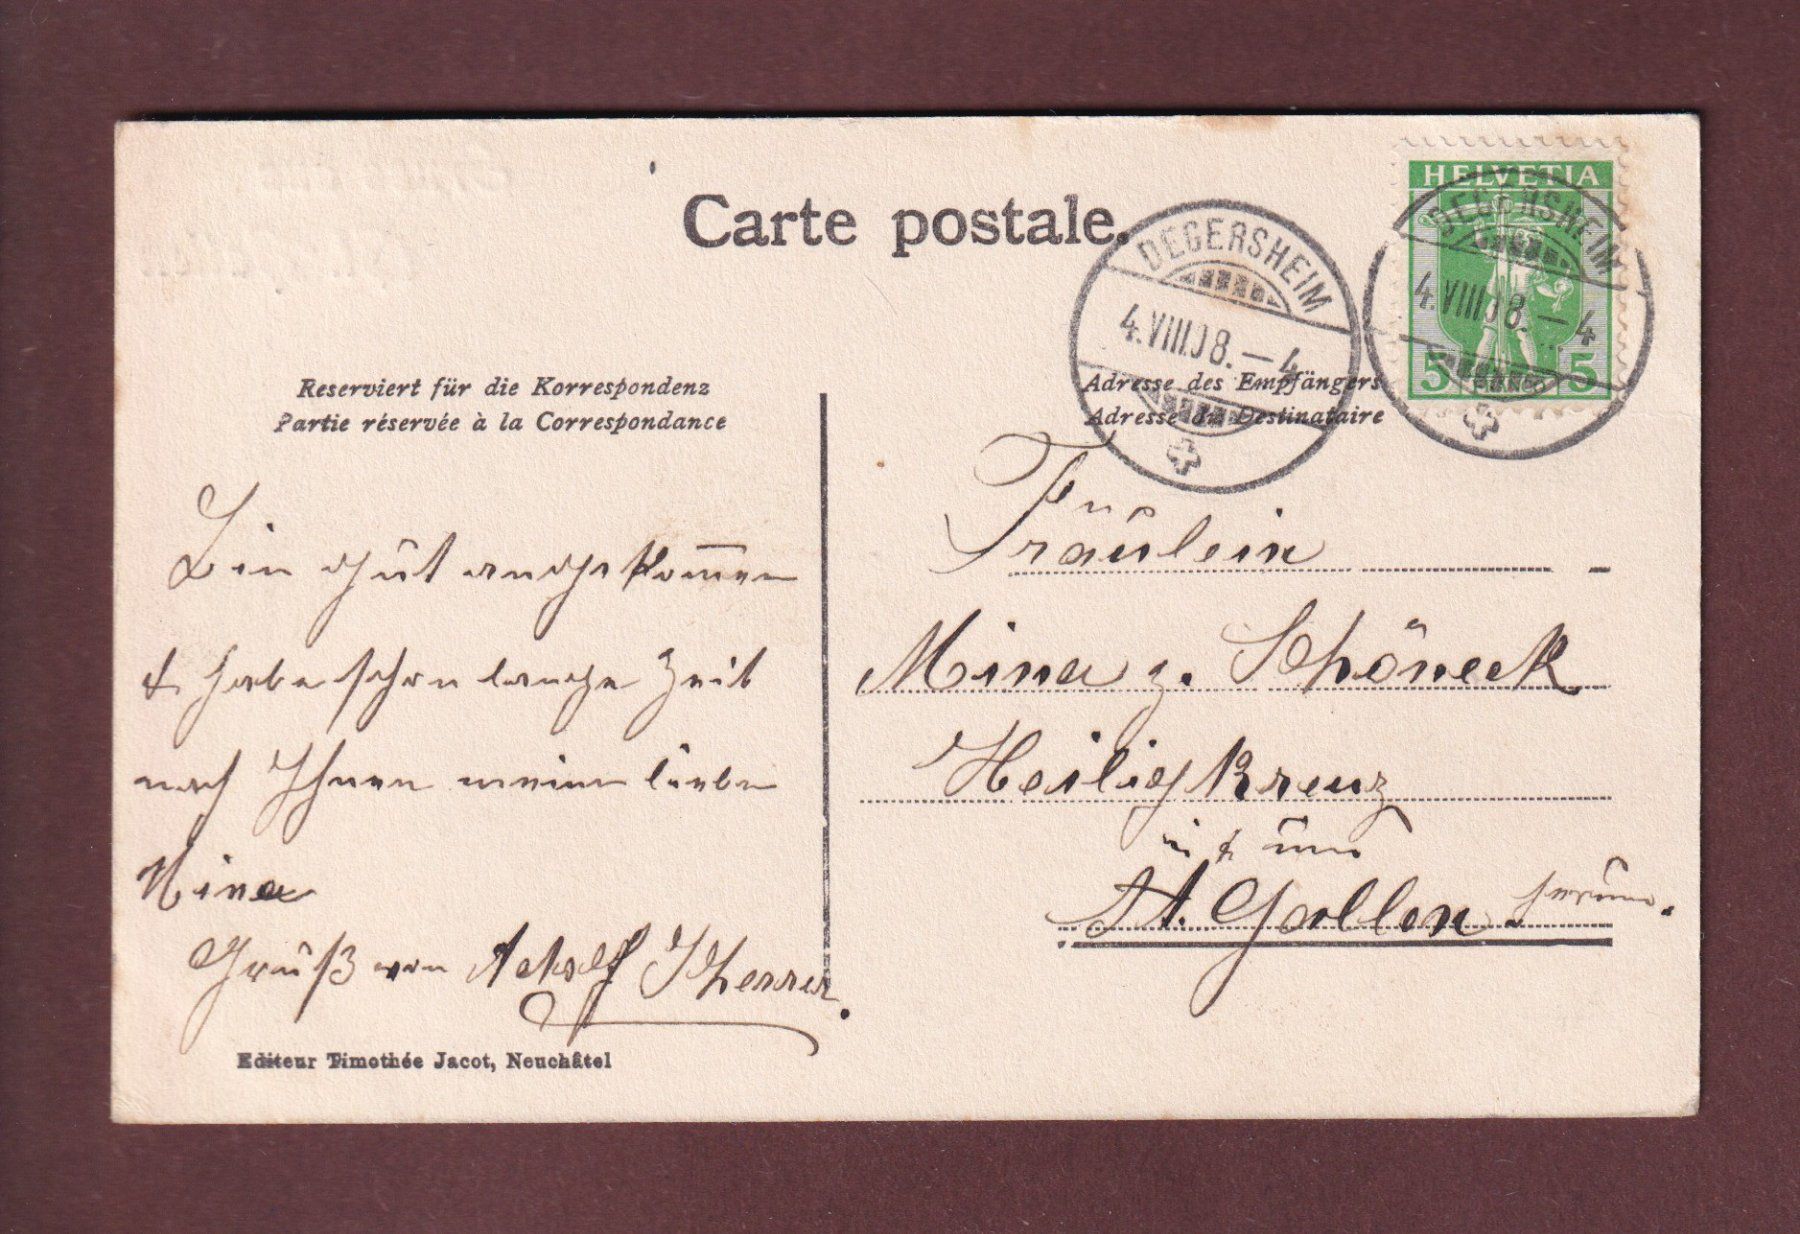 Carte postale.
HELVETIA
5 5
FRANCO
DEGERSHEIM
4.VIII.08.–4
DEGERSHEIM
4.VIII.08.–4
Reserviert für die Korrespondenz
Partie réservée à la Correspondance
Adresse des Empfängers
Adresse du Destinataire
Bin gut angekom̄en
& habe schon lange Zeit
nach Ihnen meine liebe
Mina
Gruß von Adolf
Editeur Timothée Jacot, Neuchâtel
Fräulein
Mina z. Schöneck
Heiligkreuz
St. Gallen.